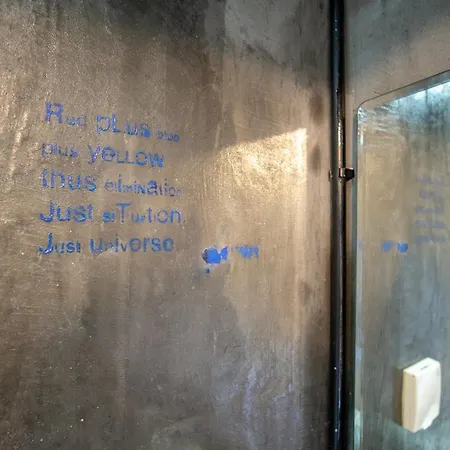 Red pLus blue
plus yeLLOW
thus elimination
Just siTuation
Just universe